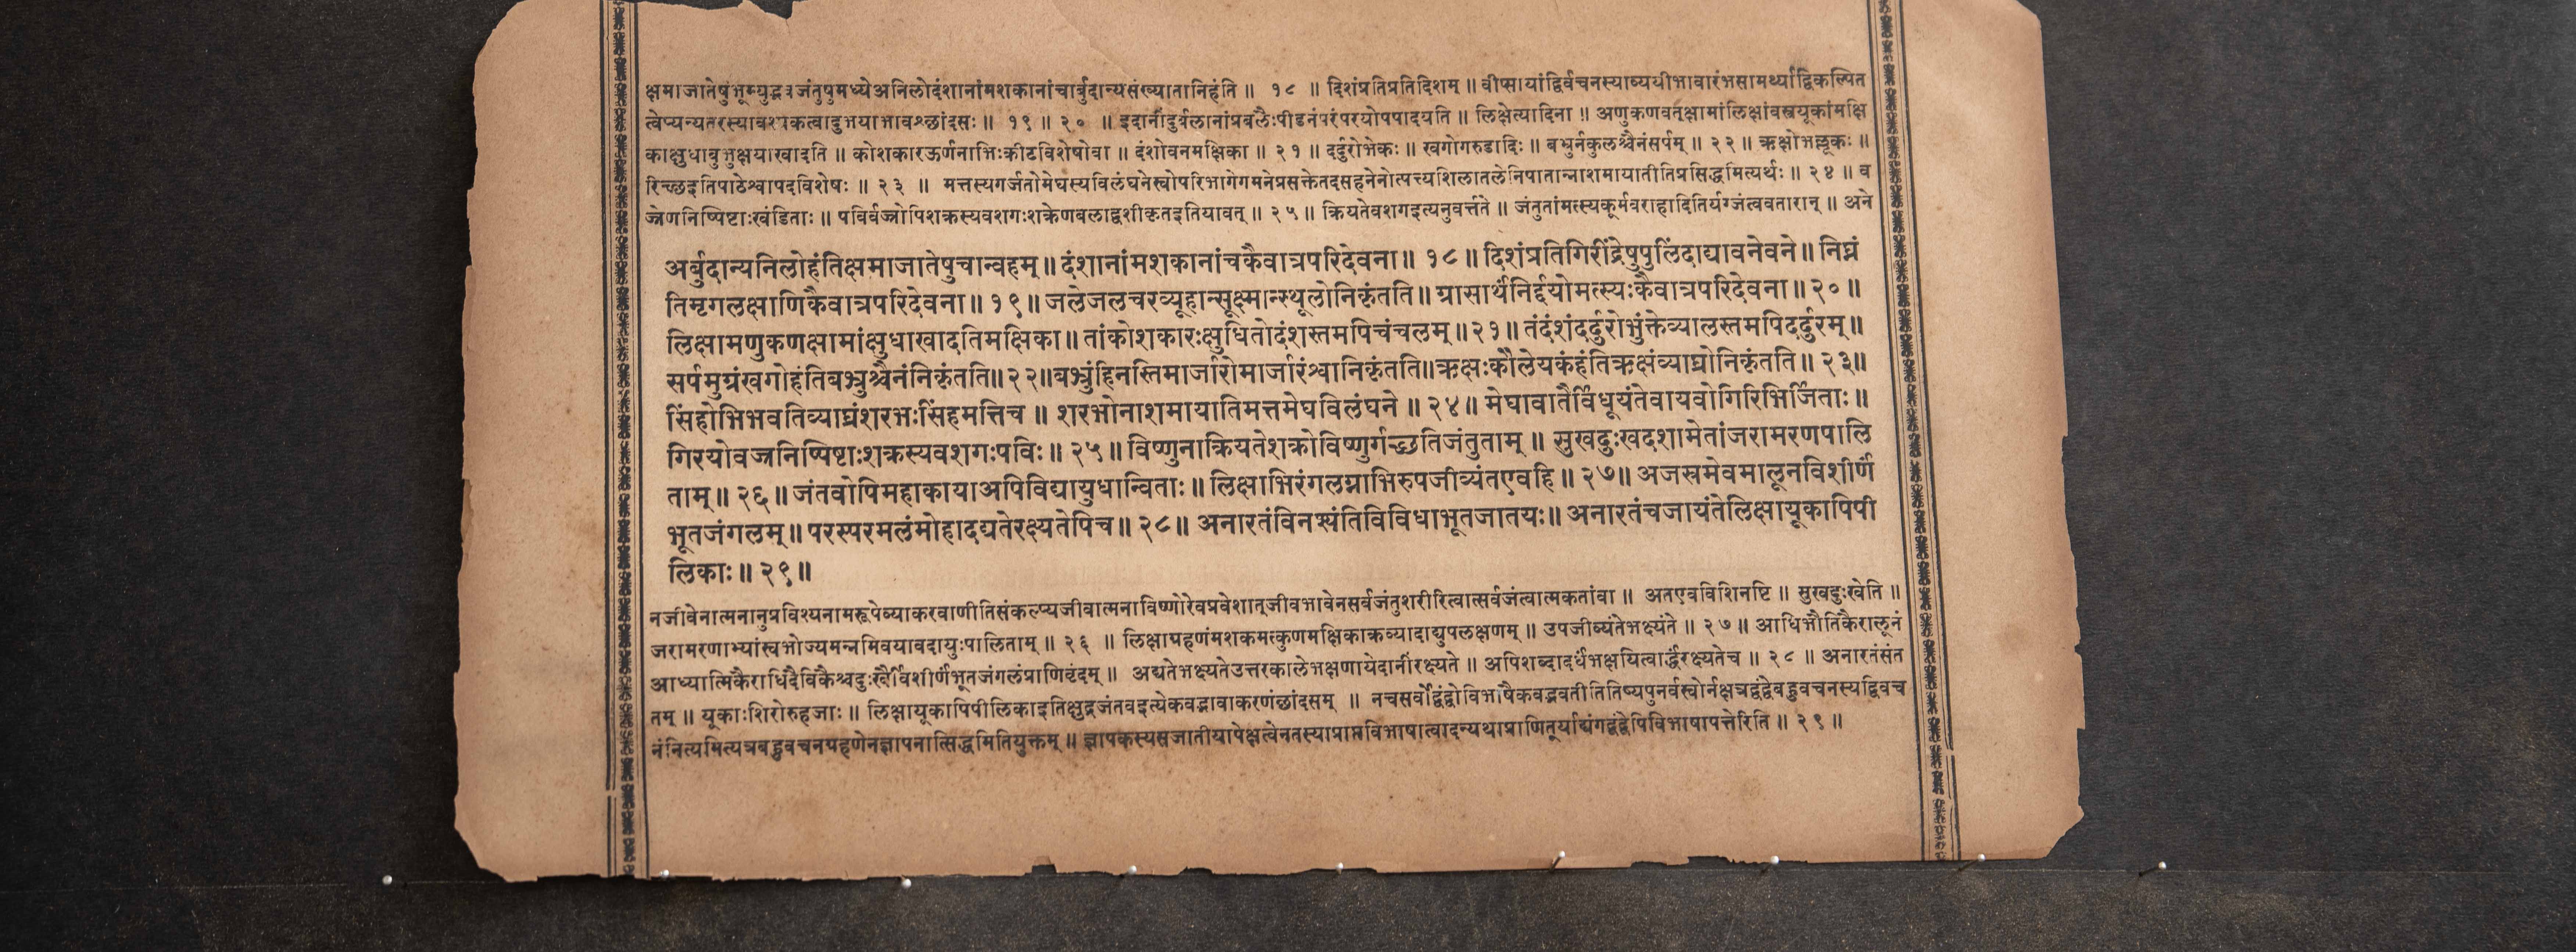 क्षमाजातेषुभूम्युद्भवजंतुषुमध्येअनिलोदंशानांमशकानांचार्बुदान्यसंख्यातानिहंति ॥ १८ ॥ दिशंप्रतिप्रतिदिशम् ॥ वीप्सायांद्विर्वचनस्याव्ययीभावारंभसामर्थ्याद्विकल्पित
त्वेप्यन्यतरस्यावश्यकत्वादुभयाभावश्छांदसः ॥ १९ ॥ २० ॥ इदानींदुर्बलानांप्रबलैःपीडनंपरंपरयोपपादयति ॥ लिक्षेत्यादिना ॥ अणुकणवत्क्षामांलिक्षांवस्त्रयूकांमक्षि
काक्षुधाबुभुक्षयाखादति ॥ कोशकारऊर्णनाभिःकीटविशेषोवा ॥ दंशोवनमक्षिका ॥ २१ ॥ दर्दुरोभेकः ॥ खगोगरुडादिः ॥ बभ्रुर्नकुलश्चैनंसर्पम् ॥ २२ ॥ ऋक्षोभल्लूकः ॥
रिच्छइतिपाठेश्वापदविशेषः ॥ २३ ॥ मत्तस्यगर्जतोमेघस्यविलंघनेस्वोपरिभागेगमनेप्रसक्तेतदसहनेनोत्पत्त्यशिलातलेनिपातान्नाशमायातीतिप्रसिद्धमित्यर्थः ॥ २४ ॥ व
ज्रेणनिष्पिष्टाःखंडिताः ॥ पविर्वज्रोपिशक्रस्यवशगःशक्रेणबलाद्वशीकृतइतियावत् ॥ २५ ॥ क्रियतेवशगइत्यनुवर्त्तते ॥ जंतुतांमत्स्यकूर्मवराहादितिर्यग्जंत्ववतारान् ॥ अने
अर्बुदान्यनिलोहंतिक्षमाजातेषुचान्वहम् ॥ दंशानांमशकानांचकैवात्रपरिदेवना ॥ १८ ॥ दिशंप्रतिगिरींद्रेषुपुलिंदाद्यावनेवने ॥ निघ्नं
तिमृगलक्षाणिकैवात्रपरिदेवना ॥ १९ ॥ जलेजलचरव्यूहान्सूक्ष्मान्स्थूलोनिकृंतति ॥ ग्रासार्थंनिर्द्दयोमत्स्यःकैवात्रपरिदेवना ॥ २० ॥
लिक्षामणुकणक्षामांक्षुधाखादतिमक्षिका ॥ तांकोशकारःक्षुधितोदंशस्तमपिचंचलम् ॥ २१ ॥ तंदंशंदर्दुरोभुंक्तेव्यालस्तमपिदर्दुरम् ॥
सर्पमुग्रंखगोहंतिबभ्रुश्चैनंनिकृंतति ॥ २२ ॥ बभ्रुंहिनस्तिमार्जारोमार्जारंश्वानिकृंतति ॥ ऋक्षःकौलेयकंहंतिऋक्षंव्याघ्रोनिकृंतति ॥ २३ ॥
सिंहोभिभवतिव्याघ्रंशरभःसिंहमत्तिच ॥ शरभोनाशमायातिमत्तमेघविलंघने ॥ २४ ॥ मेघावातैर्विधूयंतेवायवोगिरिभिर्जिताः ॥
गिरयोवज्रनिष्पिष्टाःशक्रस्यवशगःपविः ॥ २५ ॥ विष्णुनाक्रियतेशक्रोविष्णुर्गच्छतिजंतुताम् ॥ सुखदुःखदशामेतांजरामरणपालि
ताम् ॥ २६ ॥ जंतवोपिमहाकायाअपिविद्यायुधान्विताः ॥ लिक्षाभिरंगलग्नाभिरुपजीव्यंतएवहि ॥ २७ ॥ अजस्रमेवमालूनविशीर्णं
भूतजंगलम् ॥ परस्परमलंमोहादद्यतेरक्ष्यतेपिच ॥ २८ ॥ अनारतंविनश्यंतिविविधाभूतजातयः ॥ अनारतंचजायंतेलिक्षायूकापिपी
लिकाः ॥ २९ ॥
नजीवेनात्मनानुप्रविश्यनामरूपेव्याकरवाणीतिसंकल्प्यजीवात्मनाविष्णोरेवप्रवेशात्जीवभावेनसर्वजंतुशरीरित्वात्सर्वजंत्वात्मकतांवा ॥ अतएवविशिनष्टि ॥ सुखदुःखेति ॥
जरामरणाभ्यांस्वभोज्यमन्नमिवयावदायुःपालिताम् ॥ २६ ॥ लिक्षाग्रहणंमशकमत्कुणमक्षिकाक्रव्यादाद्युपलक्षणम् ॥ उपजीव्यंतेभक्ष्यंते ॥ २७ ॥ आधिभौतिकैरालूनं
आध्यात्मिकैराधिदैविकैश्चदुःखैर्विशीर्णंभूतजंगलंप्राणिवृंदम् ॥ अद्यतेभक्ष्यतेउत्तरकालेभक्षणायेदानींरक्ष्यते ॥ अपिशब्दादर्धंभक्षयित्वार्द्धंरक्ष्यतेच ॥ २८ ॥ अनारतंसंत
तम् ॥ यूकाःशिरोरुहजाः ॥ लिक्षायूकापिपीलिकाइतिक्षुद्रजंतवइत्येकवद्भावाकरणंछांदसम् ॥ नचसर्वोद्वंद्वोविभाषैकवद्भवतीतितिष्यपुनर्वस्वोर्नक्षत्रद्वंद्वेबहुवचनस्यद्विवच
नंनित्यमित्यत्रबहुवचनग्रहणेनज्ञापनात्सिद्धमितियुक्तम् ॥ ज्ञापकस्यसजातीयापेक्षत्वेनतस्याप्राप्तविभाषात्वादन्यथाप्राणितूर्याद्यंगद्वंद्वेपिविभाषापत्तेरिति ॥ २९ ॥